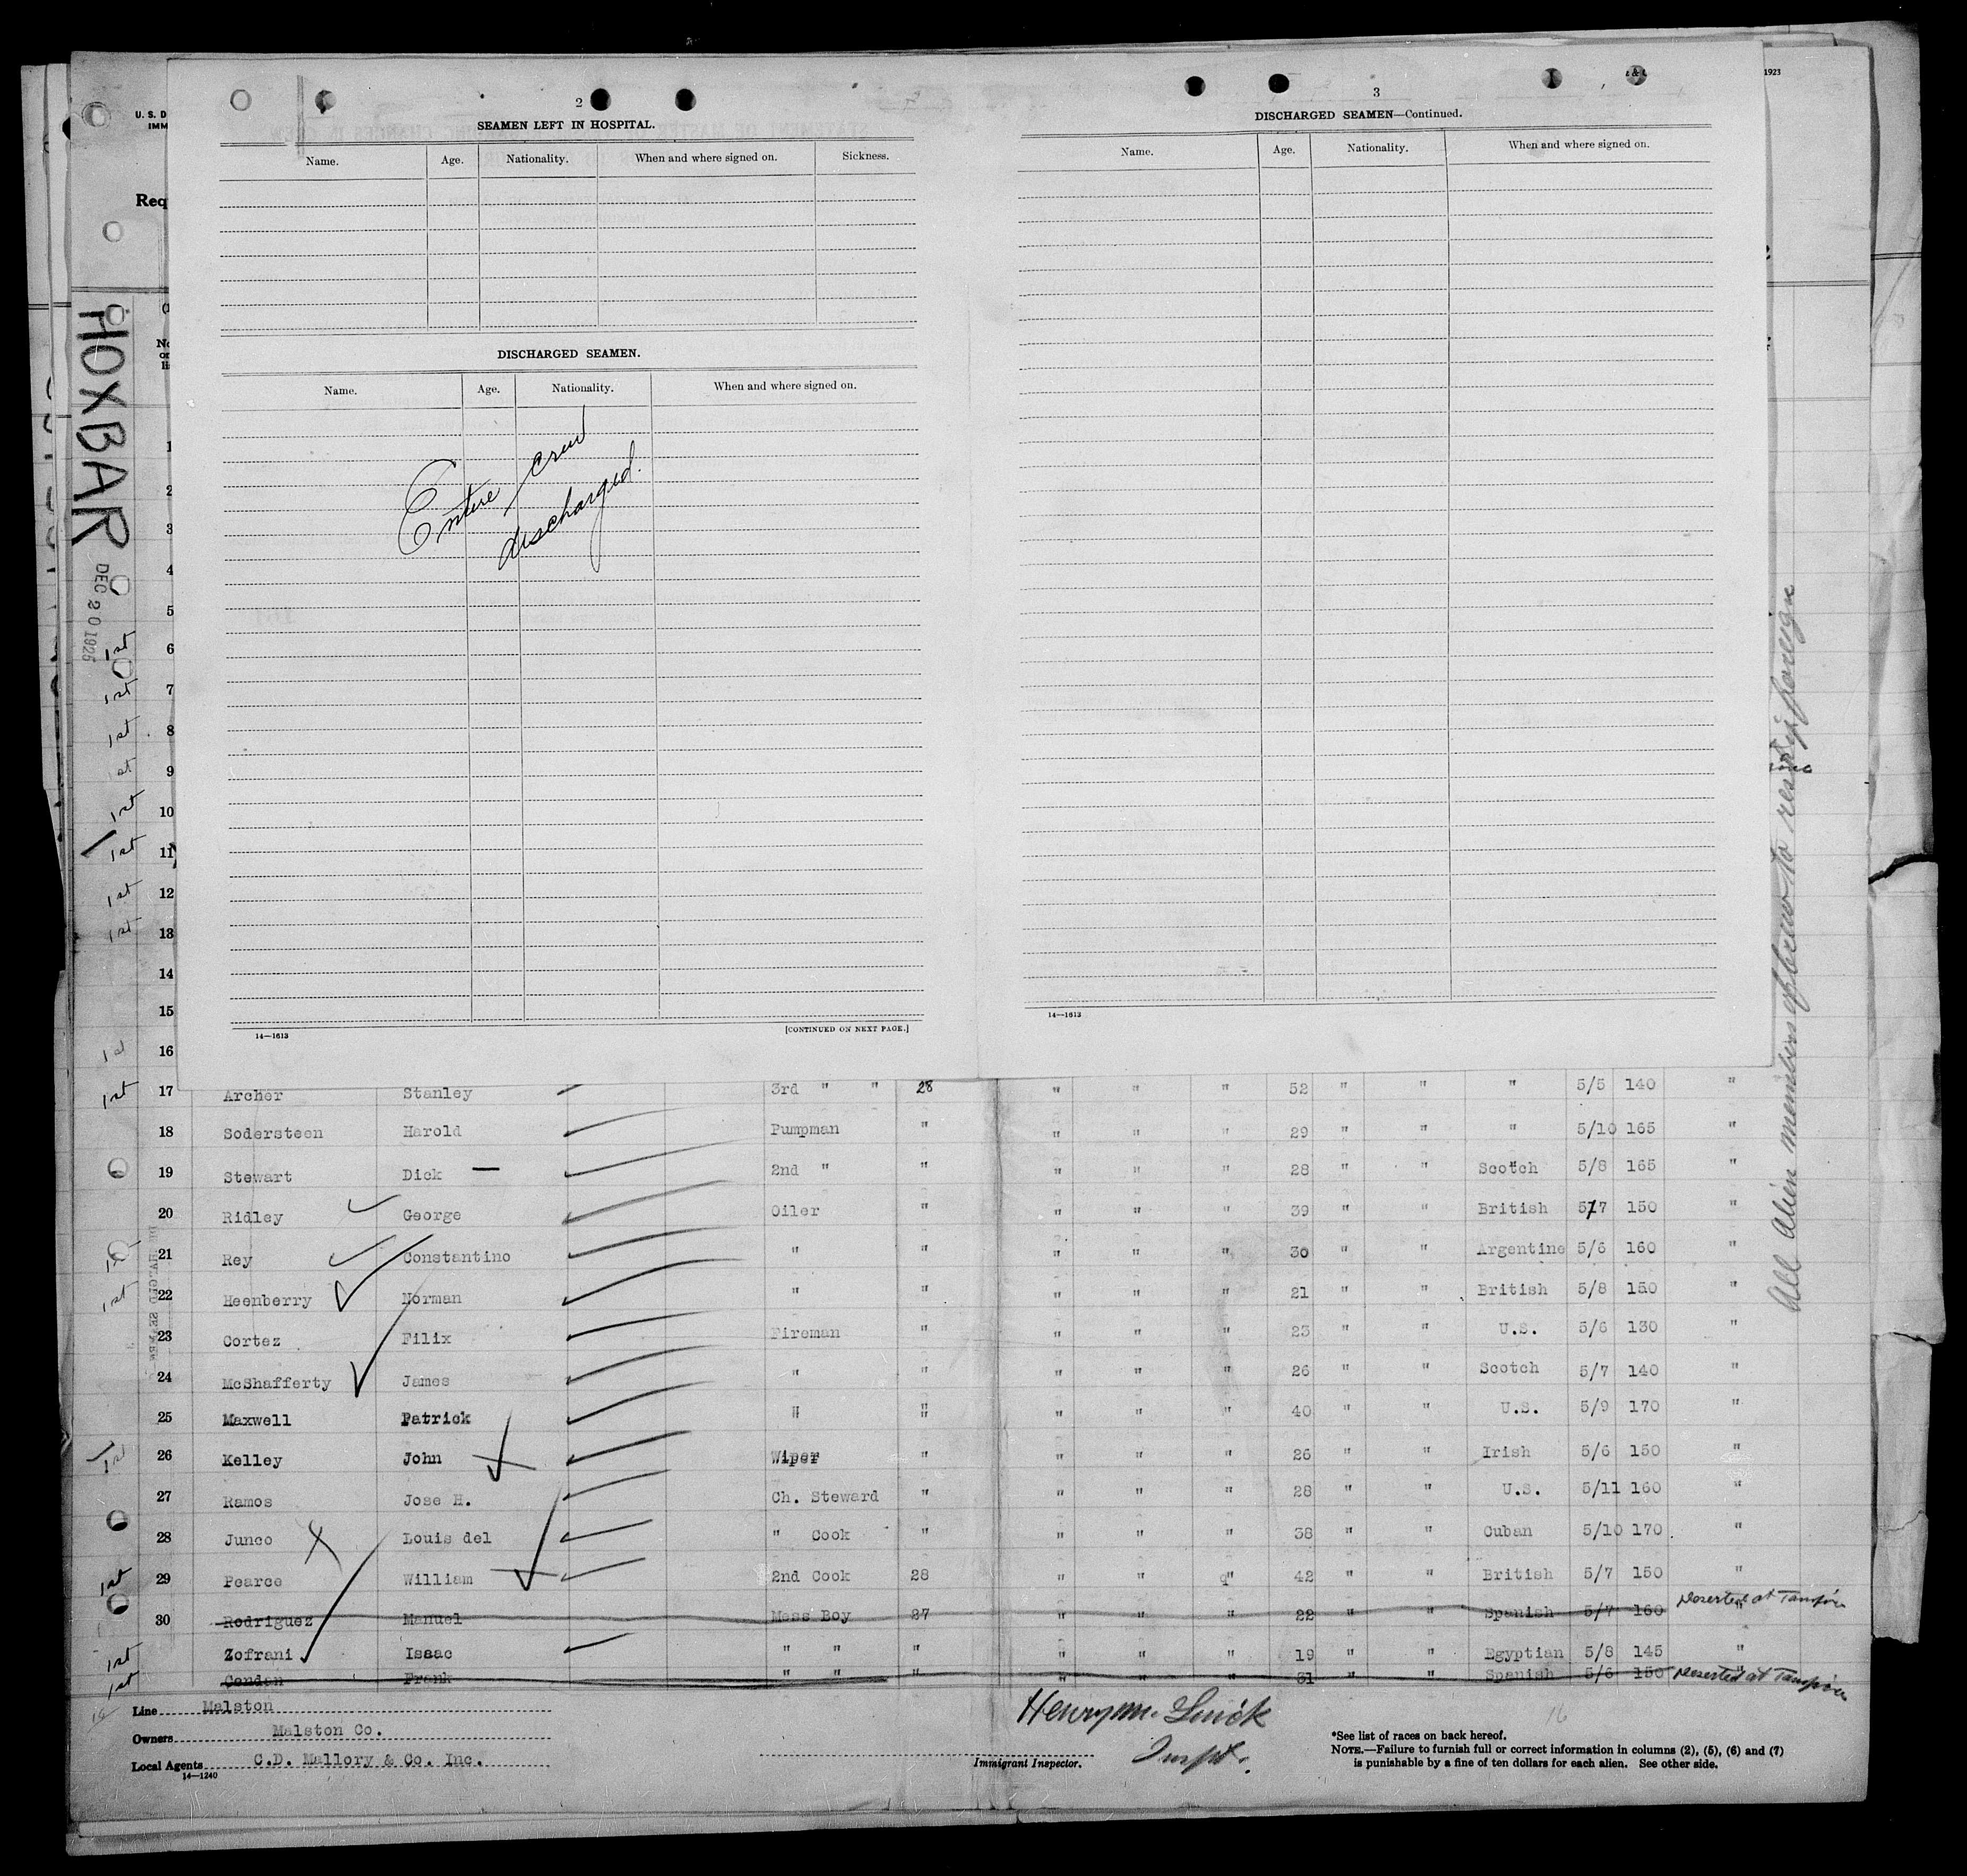 U. S. D
IMM
Req
1923
HOXBAR
DEC 20 1925
2
SEAMEN LEFT IN HOSPITAL.
Name. Age. Nationality. When and where signed on. Sickness.
DISCHARGED SEAMEN.
Name. Age. Nationality. When and where signed on.
Entire crew
discharged.
14—1613 [CONTINUED ON NEXT PAGE.]
3
DISCHARGED SEAMEN—Continued.
Name. Age. Nationality. When and where signed on.
14—1613
1
2
3
4
5
1st 6
1st 7
1st 8
st 9
1st 10
1st 11
1st 12
1st 13
14
15
16
1st 17 Archer Stanley 3rd " " 28 " " " 52 " " " 5/5 140 "
18 Sodersteen Harold Pumpman " " " " 29 " " " 5/10 165 "
19 Stewart Dick — 2nd " " " " " 28 " " Scotch 5/8 165 "
20 Ridley George Oiler " " " " 39 " " British 5/7 150 "
21 Rey Constantino " " " " " 30 " " Argentine 5/6 160 "
1st 22 Heenberry Norman " " " " " 21 " " British 5/8 150 "
23 Cortez Filix Fireman " " " " 23 " " U.S. 5/6 130 "
24 McShafferty James " " " " " 26 " " Scotch 5/7 140
25 Maxwell Patrick " " " " " 40 " " U.S. 5/9 170 "
26 Kelley John Wiper " " " " 26 " " Irish 5/6 150 "
27 Ramos Jose H. Ch. Steward " " " " 28 " " U.S. 5/11 160 "
28 Junco Louis del " Cook " " " " 38 " " Cuban 5/10 170 "
1st 29 Pearce William 2nd Cook 28 " " " 42 " " British 5/7 150 "
30 Rodriguez Manuel Mess Boy 27 " " " 22 " " Spanish 5/7 160 " Deserted at Tampico
1st Zofrani Isaac " " " " " " 19 " " Egyptian 5/8 145 "
1st Condon Frank " " " " " " 31 " " Spanish 5/6 150 " Deserted at Tampico
All alien members of crew to reship foreign
Line Malston
Owners Malston Co.
Local Agents C.D. Mallory & Co. Inc.
14—1240
Henry M. Luick
Inspt.
Immigrant Inspector.
16
*See list of races on back hereof.
NOTE.—Failure to furnish full or correct information in columns (2), (5), (6) and (7)
is punishable by a fine of ten dollars for each alien. See other side.